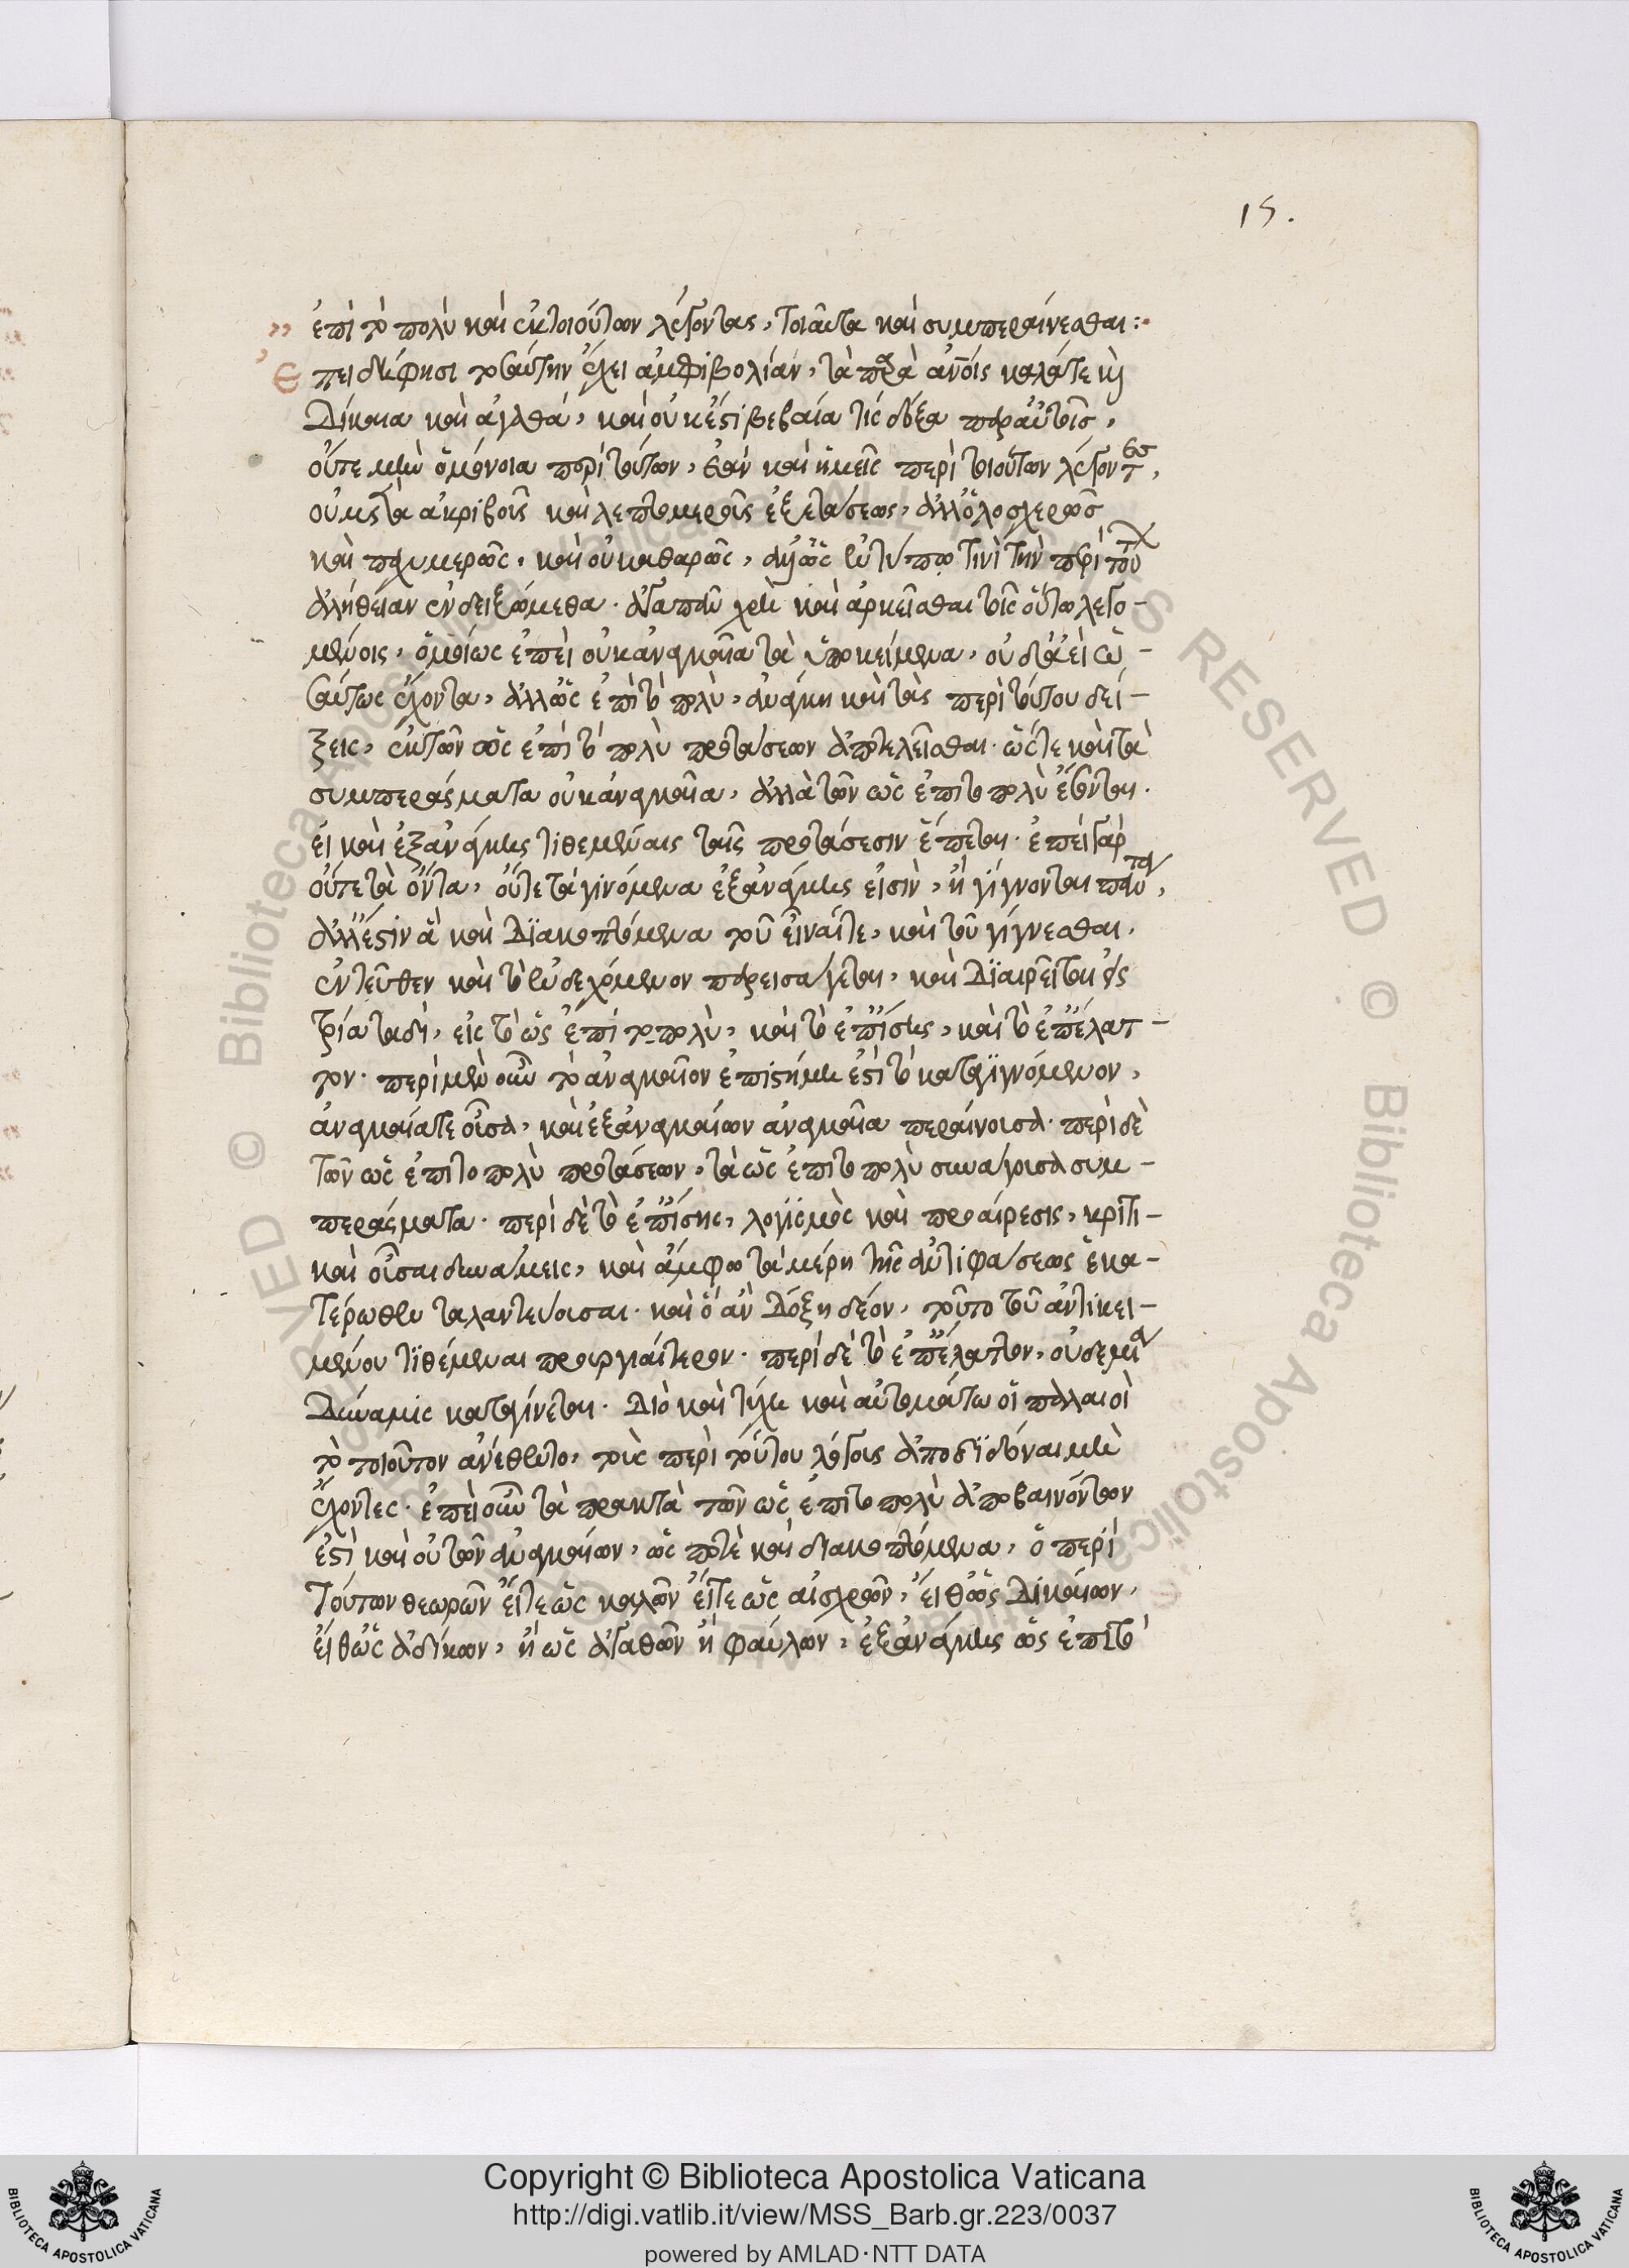 15.
ἐπὶ τὸ πολὺ καὶ ἐκ τοιούτων λέγοντας, τοιαῦτα καὶ συμπεραίνεσθαι:
Ἐπειδή φησι τοσαύτην ἔχει ἀμφιβολίαν, τὰ παρὰ ἀνοις καλά τε καὶ
Δίκαια καὶ ἀγαθά, καὶ οὐκ ἔστι βεβαία τὶς δόξα παρ' αὐτοῖς,
οὔτε μὴν ὁμόνοια περὶ τούτων, ἐὰν καὶ ἡμεῖς περὶ τοιούτων λέγοντες,
οὐ μετὰ ἀκριβοῦς καὶ λεπτομεροῦς ἐξετάσεως, ἀλλ' ὁλοσχερῶς
καὶ παχυμερῶς, καὶ οὐ καθαρῶς, ἀλλ' ὡς ἐν τύπῳ τινὶ τὴν περὶ τού
ἀλήθειαν ἐνδειξώμεθα. ἀγαπᾶν χρὴ καὶ ἀρκεῖσθαι τοῖς οὕτω λεγο-
μένοις, ὁμοίως ἐπεὶ οὐκ ἀναγκαῖα τὰ ὑποκείμενα, οὐδ' ἀεὶ ὡ-
σαύτως ἔχοντα, ἀλλ' ὡς ἐπὶ τὸ πολὺ, ἀνάγκη καὶ τὰς περὶ τούτου δεί-
ξεις, ἐκ τῶν ὡς ἐπὶ τὸ πολὺ προτάσεων ἀποτελεῖσθαι. ὥστε καὶ τὰ
συμπεράσματα οὐκ ἀναγκαῖα, ἀλλὰ τῶν ὡς ἐπὶ το πολὺ ἔσονται.
εἰ καὶ ἐξ ἀνάγκης τιθεμέναις ταῖς προτάσεσιν ἕπεται. ἐπεὶ γὰρ
οὔτε τὰ ὄντα, οὔτε τὰ γινόμενα ἐξ ἀνάγκης εἰσὶν, ἢ γίγνονται πάντα,
ἀλλ' ἔστιν ἃ καὶ Διακοπτόμενα τοῦ εἶναί τε, καὶ τοῦ γίγνεσθαι,
ἐντεῦθεν καὶ τὸ ἐνδεχόμενον παρεισάγεται, καὶ Διαιρεῖται εἰς
τρία ταδὶ, εἰς τὸ ὡς ἐπὶ το πολὺ, καὶ τὸ ἐπίσης, καὶ τὸ ἐπ' ἔλατ-
τον. περὶ μὲν οὖν τὸ ἀναγκαῖον ἐπιστήμη ἐστὶ τὸ καταγιγνόμενον,
ἀναγκαία τε οὖσα, καὶ ἐξ ἀναγκαίων ἀναγκαῖα περαίνουσα. περὶ δὲ
τῶν ὡς ἐπὶ το πολὺ προτάσεων, τὰ ὡς ἐπὶ το πολὺ συνάγουσα συμ-
περάσματα. περὶ δὲ τὸ ἐπίσης, λογισμὸς καὶ προαίρεσις, κριτι-
καὶ οὖσαι δυνάμεις, καὶ ἄμφω τὰ μέρη τῆς ἀντιφάσεως ἑκα-
τέρωθεν ταλαντεύουσαι. καὶ ὃ ἂν Δόξη δέον, τοῦτο τοῦ ἀντικει-
μένου τιθέμεναι προυργιαίτερον. περὶ δὲ τὸ ἐπ' ἔλαττον, οὐδεμία
Δύναμις καταγίνεται. Διὸ καὶ τύχη καὶ αὐτομάτω οἱ πάλαι οἱ
τὸ τοιοῦτον ἀνέθεντο, τοὺς περὶ τούτου λόγους ἀποδιδόναι μὴ
ἔχοντες. ἐπεὶ οὖν τὰ πρακτὰ τῶν ὡς ἐπὶ το πολὺ ἀποβαινόντων
ἐστὶ καὶ οὐ τῶν ἀναγκαίων, ὥς ποτὲ καὶ διακοπτόμενα, ὁ περὶ
τούτων θεωρῶν εἴτε ὡς καλῶν εἴτε ὡς αἰσχρῶν, εἴθ' ὡς Δικαίων,
εἴθ' ὡς ἀδίκων, ἢ ὡς ἀγαθῶν ἢ φαύλων, ἐξ ἀνάγκης ὡς ἐπὶ τὸ
© Biblioteca Apostolica Vaticana ALL RIGHTS RESERVED
Copyright © Biblioteca Apostolica Vaticana
http://digi.vatlib.it/view/MSS_Barb.gr.223/0037
powered by AMLAD·NTT DATA
BIBLIOTECA APOSTOLICA VATICANA
BIBLIOTECA APOSTOLICA VATICANA